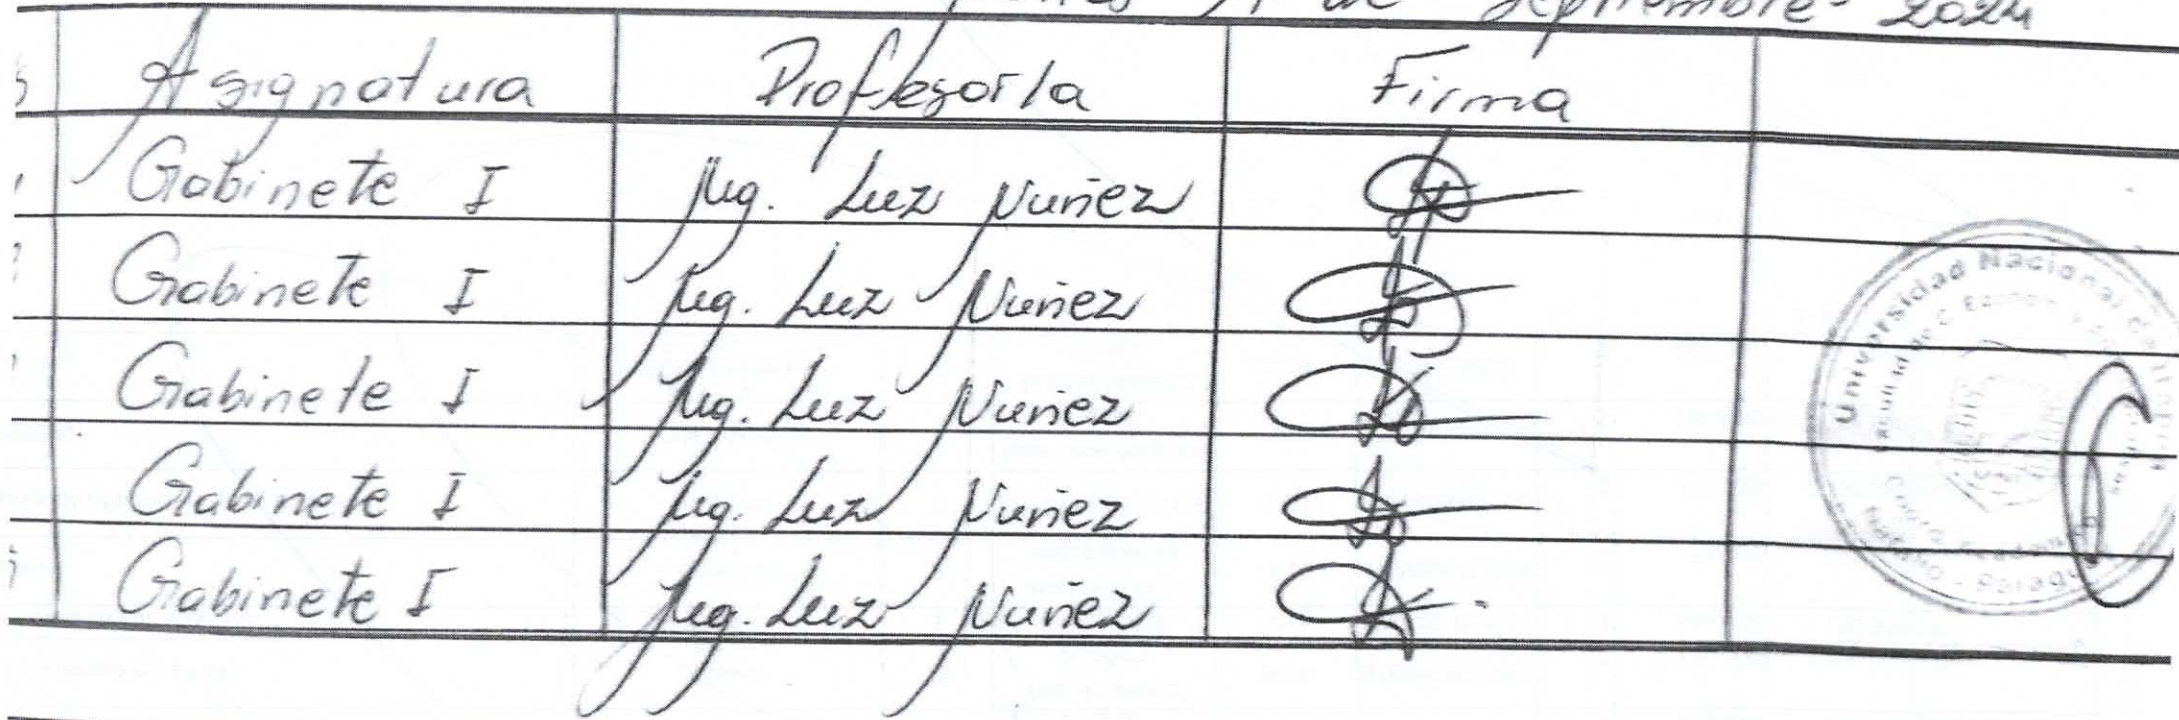 de Septiembre 2024
Asignatura Profesor/a Firma
Gabinete I Mg. Luz Nuñez
Gabinete I Mg. Luz Nuñez
Gabinete I Mg. Luz Nuñez
Gabinete I Mg. Luz Nuñez
Gabinete I Mg. Luz Nuñez
Universidad Nacional
Facultad de C. Econ